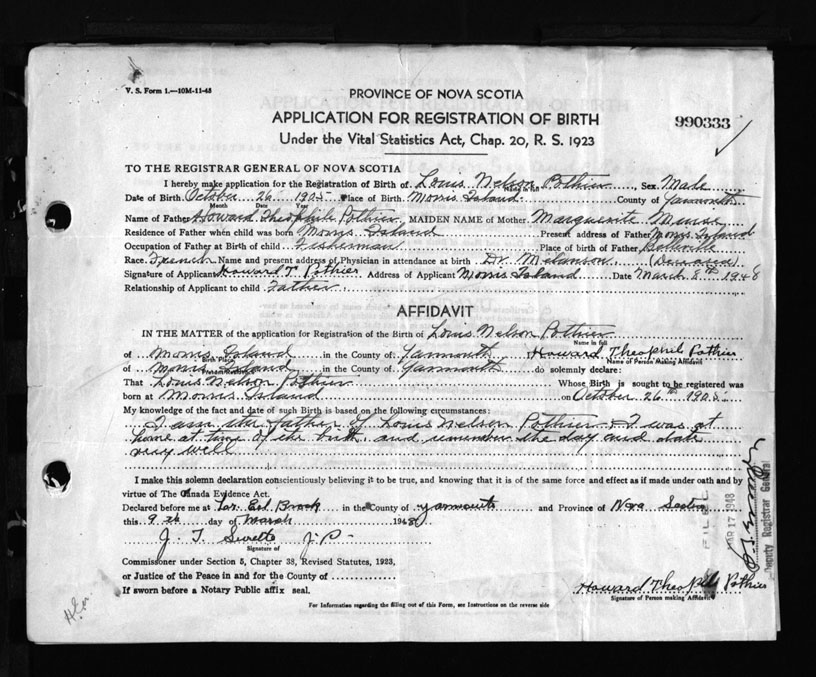 V. S. Form 1.—10M-11-45
PROVINCE OF NOVA SCOTIA
APPLICATION FOR REGISTRATION OF BIRTH
990333
Under the Vital Statistics Act, Chap. 20, R. S. 1923
TO THE REGISTRAR GENERAL OF NOVA SCOTIA
I hereby make application for the Registration of Birth of Louis Nelson Pothier Sex Male
Name in full
Date of Birth October 26 1925 Place of Birth Morris Island County of Yarmouth
Month Date Year
Name of Father Howard Theophile Pothier MAIDEN NAME of Mother Marguerite Muise
Residence of Father when child was born Morris Island Present address of Father Morris Island
Occupation of Father at Birth of child Fisherman Place of Birth of Father Belleville
Race French Name and present address of Physician in attendance at birth Dr Melanson (Deceased)
Signature of Applicant Howard T. Pothier Address of Applicant Morris Island Date March 8th 1948
Relationship of Applicant to child Father
AFFIDAVIT
IN THE MATTER of the application for Registration of the Birth of Louis Nelson Pothier
Name in full
of Morris Island in the County of Yarmouth, I Howard Theophile Pothier
Birth Place Name of Person Making Affidavit
of Morris Island in the County of Yarmouth do solemnly declare:
That Louis Nelson Pothier Whose Birth is sought to be registered was
born at Morris Island on October 26th 1925
My knowledge of the fact and date of such Birth is based on the following circumstances:
I am the father of Louis Nelson Pothier & I was at
home at time of the birth and remember the day and date
very well
I make this solemn declaration conscientiously believing it to be true, and knowing that it is of the same force and effect as if made under oath and by
virtue of The Canada Evidence Act.
Declared before me at Eel Brook in the County of Yarmouth and Province of Nova Scotia
this 9th day of March 1948
J. T. J.P.
Signature of
Commissioner under Section 5, Chapter 38, Revised Statutes, 1923,
or Justice of the Peace in and for the County of
If sworn before a Notary Public affix seal.
Howard Theophile Pothier
Signature of Person making Affidavit
For Information regarding the filling out of this Form, see Instructions on the reverse side
FILED
MAR 17 1948
Deputy Registrar General